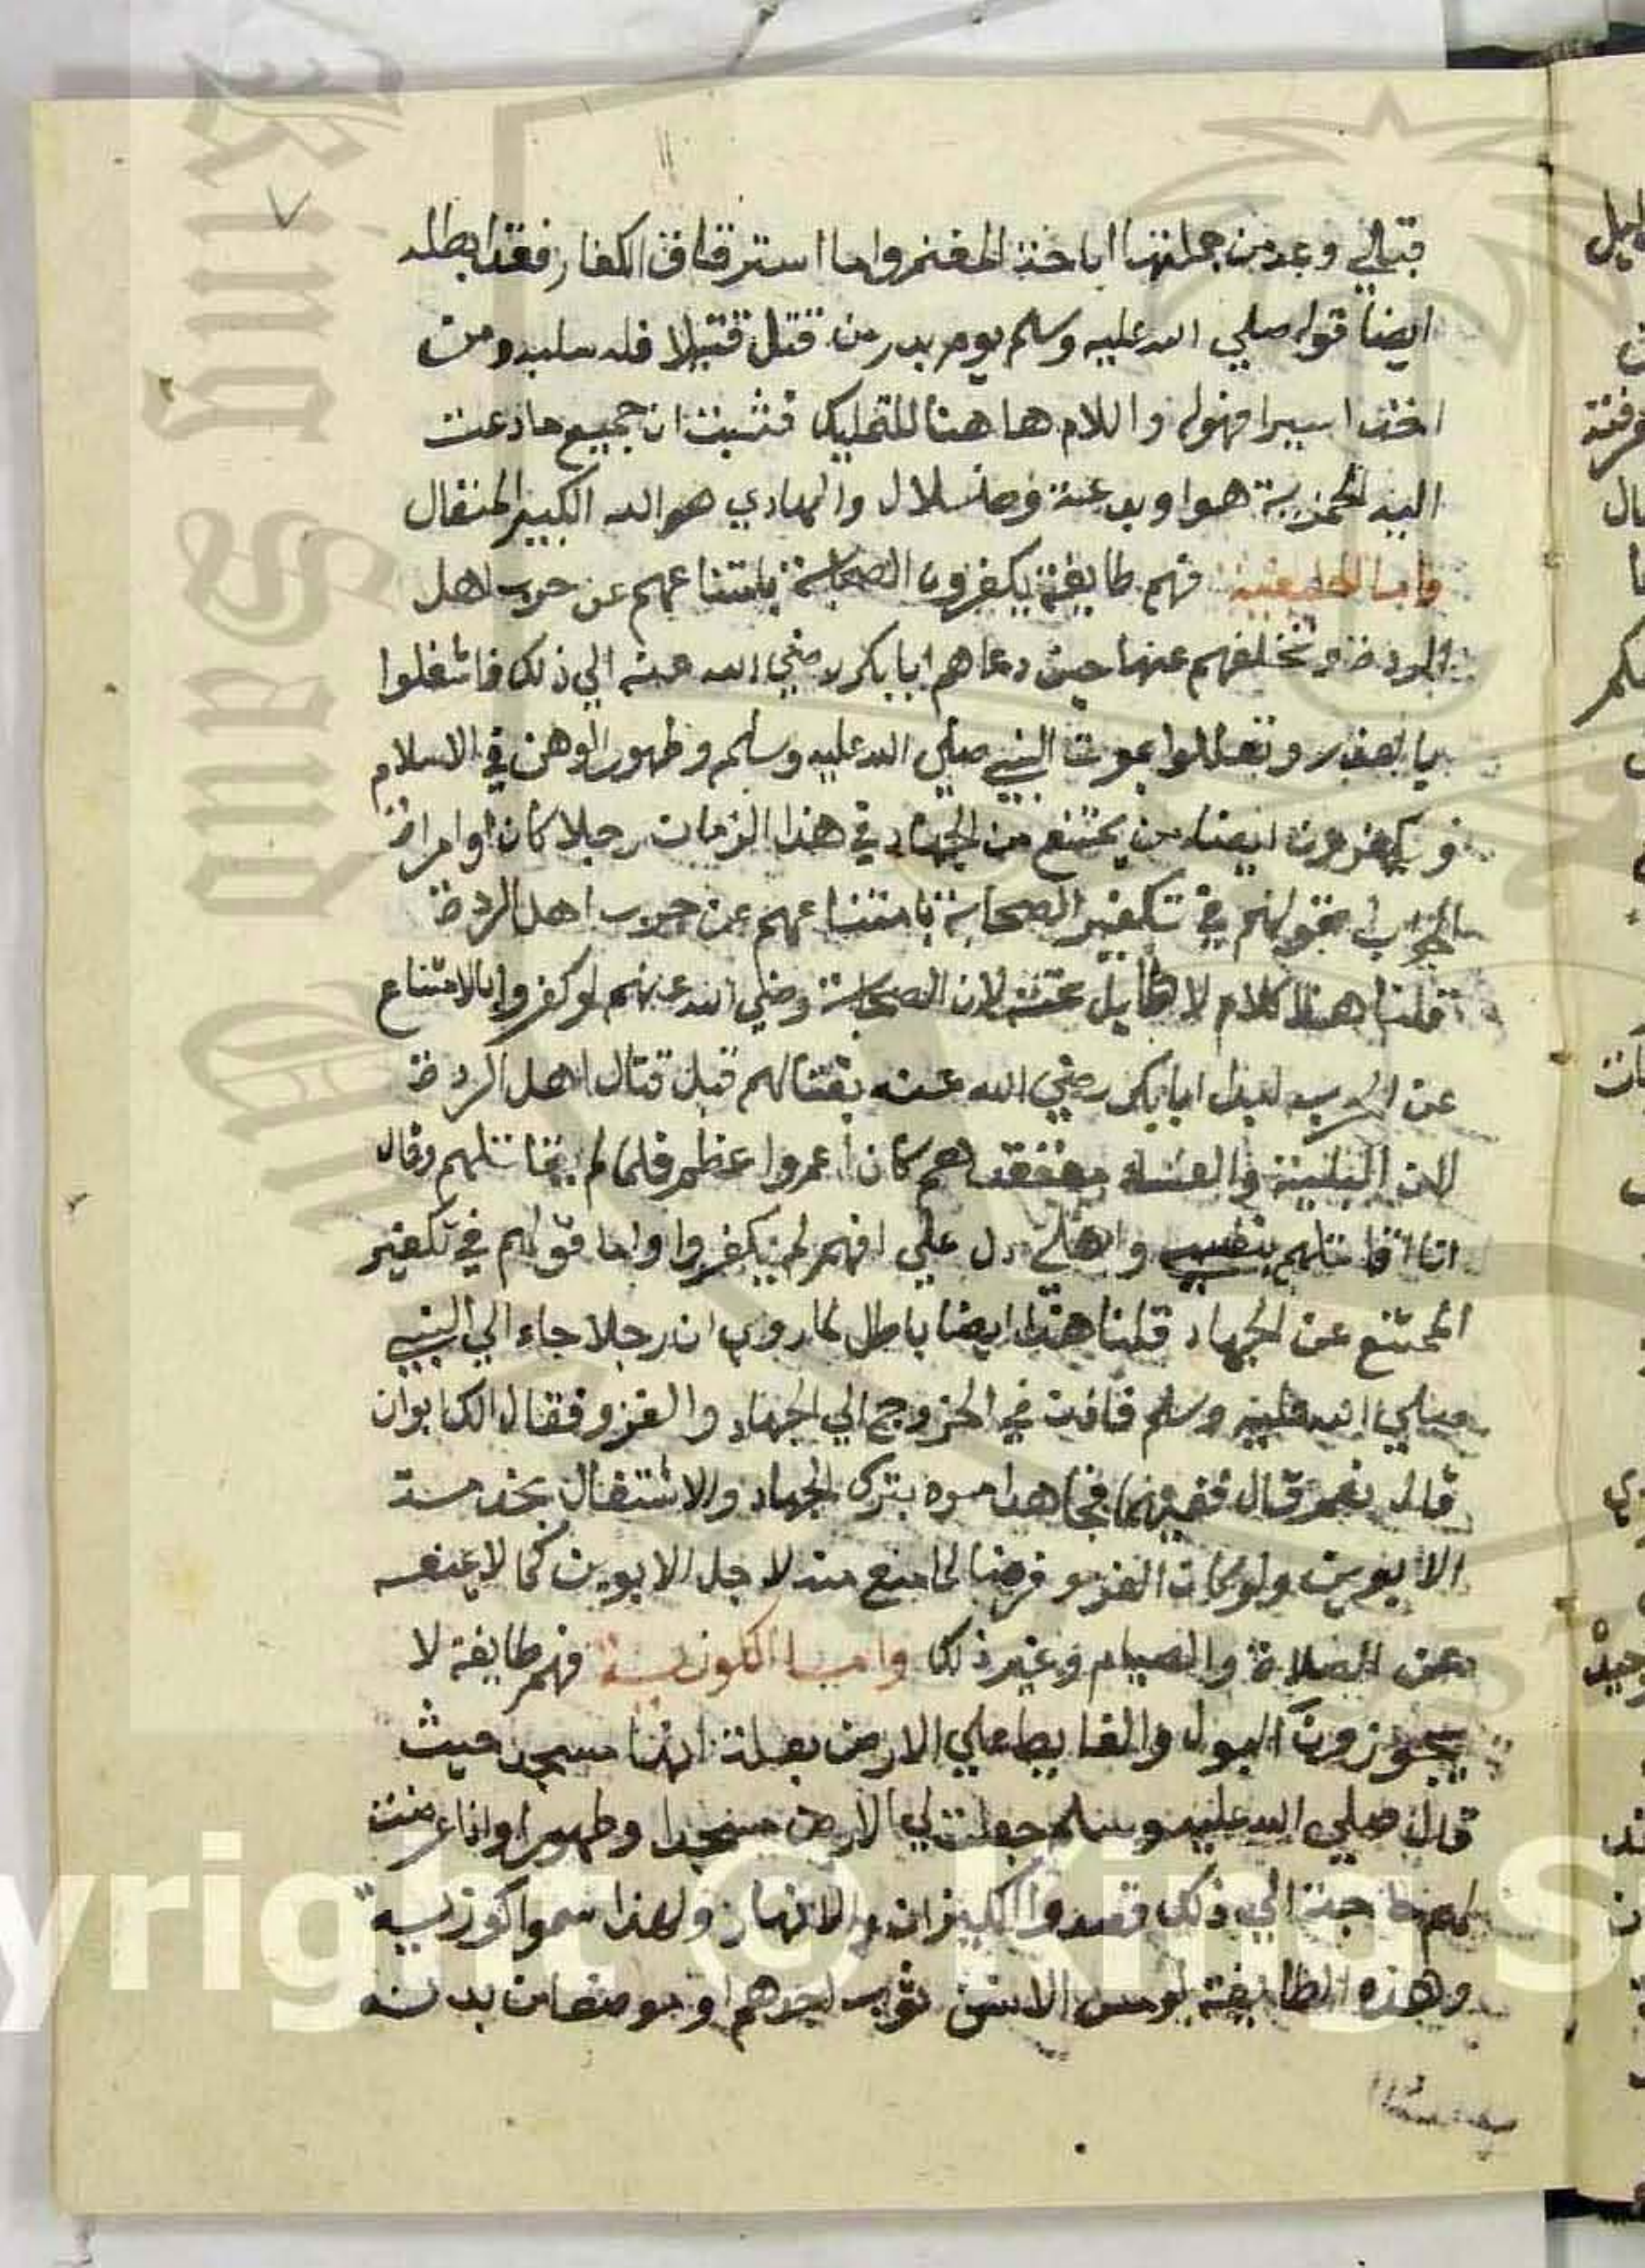 قبلي وعد من جملتها اباحة المغنم واما استرقاق الكفار فقد ابطله
ايضا قوله صلي الله عليه وسلم يوم بدر من قتل قتيلا فله سلبه ومن
اخذ اسيرا فهوله واللام هاهنا للتمليك فثبت ان جميع ما ذعت
اليه هوا وبدعة وضلال والهادي هو الله الكبير المتعال
واما فهم طايفة يكفرون الصحابة بامتناعهم عن حرب اهل
الردة وتخلفهم عنها حين دعاهم ابا بكر رضي الله عنه الي ذلك فاشغلوا
وتعللوا بموت النبي صلي الله عليه وسلم وظهور الوهن في الاسلام
ويكفرون ايضا من يمتنع من الجهاد في هذا الزمان رجلا كان او امراة
الجواب في تكفير الصحابة بامتناعهم عن حرب اهل الردة
قلنا هذا كلام لا طايل تحته لان الصحابة رضي الله عنهم لو كفروا بالامتناع
عن الحرب لبدا ابا بكر رضي الله عنه بقتالهم قبل قتال اهل الردة
لان البلية هم كان اعم واعظم فلما لم يقاتلهم وقال
انا اقاتلهم بنفسي واهلي دل علي انهم لم يكفروا واما قولهم في تكفير
الممتنع عن الجهاد قلنا هذا ايضا باطل لما روي ان رجلا جاء الي النبي
صلي الله عليه وسلم في الخروج الي الجهاد والغزو فقال الك ابوان
قال نعم قال ففيهما فجاهد امره بترك الجهاد والاشتغال بخدمة
الابوين ولو كان الغزو فرضا لما منع منه لاجل الابوين كما لا يمنعه
عن الصلاة والصيام وغير ذلك واما الكوزية فهم طايفة لا
يجوزون البول والغايط علي الارض بعلة انها مسجد حيث
قال صلي الله عليه وسلم جعلت لي الارض مسجدا وطهورا واذا عرضت
لهم حاجة الي ذلك قصدوا الكيزان والانهار ولهذا سموا كوزية
وهذه الطايفة لو مس الانسان ثوب احدهم او موضعا من بدنه